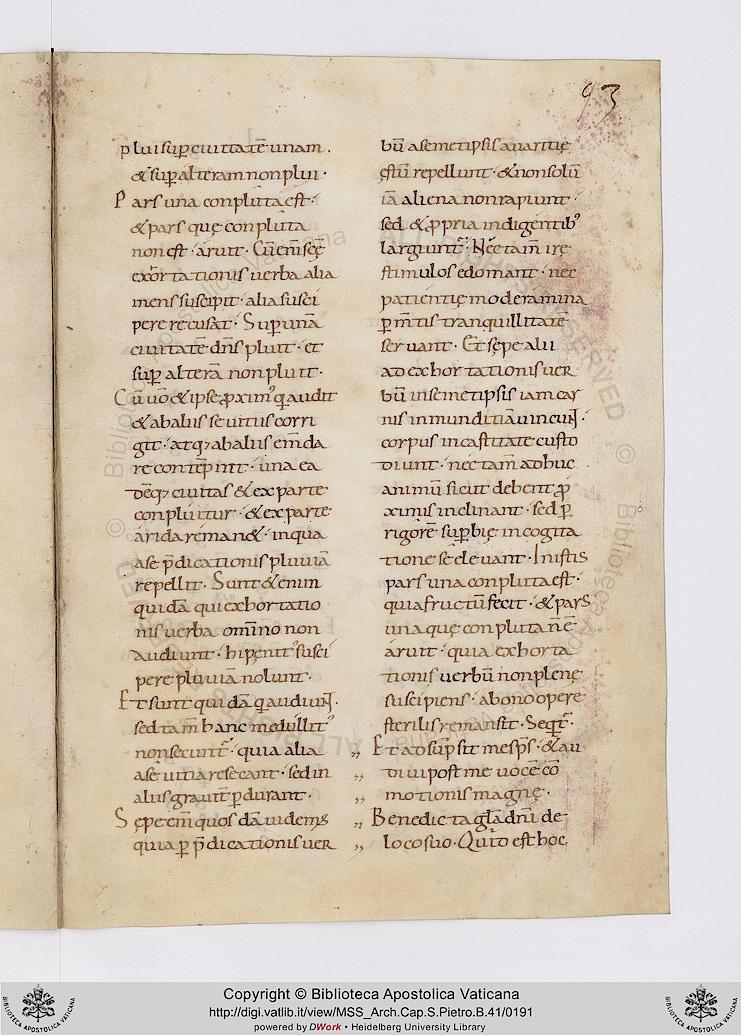 93
plui sup̄ ciuitatē unam.
& sup̄ alteram non plui·
Pars una conplūta est·
& pars quę conplūta
non est · aruit· Cū em̄ scę̄
exortationis uerba alia
mens suscipit· alia susci
pere recusat· Sup̄ unā
ciuitatē dn̄s pluit· et
sup̄ alterā non pluit·
Cū uō & ipse proximꝰ q̄ audit
& ab aliis se uitiis corri
git· atq; ab aliis em̄da
re contēpnit· una ea
dēq; ciuitas & ex parte
conpluitur· & ex parte
arida reman&· in qua
a se p̄dicationis pluuiā
repellit· Sunt & enim
quidā qui exhortatio
nis uerba omīno non
audiunt· hi penitꝰ susci
pere pluuiā nolunt·
Et sunt quidā q̄ audiun̄t·
sed tam̄ hanc medullitꝰ
non secuntᷣ· quia alia
a sē uitia resecant· sed in
aliis grauit̄ p̄durant·
Sępe em̄ quosdā uidemꝰ
quia p̄ p̄dicationis uer
bū a semetipsis auaritię
ęstū repellunt· & non solū
iā aliena non rapiunt·
sed & propria indigentibꝰ
largiuntᷣ· Nec tam̄ irę
stimulos edomant· nec
patientię moderamina
p̄ m̄tis tranquillitatē
seruant· Et sępe alii
ad exhortationis uer
bū in semetipsis iam car
nis inmunditiā uincun̄t·
corpus in castitate custo
diunt· nec tam̄ adhuc
animū sicut debent pro
ximis inclinant· sed p̄
rigorē sup̄bię in cogita
tione sē eleuant· In istis
pars una conplūta est·
quia fructū fecit· & pars
una quę conplūta n̄ ē
aruit· quia exhorta
tionis uerbū non plenę
suscipiens· a bono opere
sterilis remansit· Seq̄tᷣ·
„ Et adsūpsit me sp̄s· & au
„ diui post me uocē cō
„ motionis magnę·
„ Benedicta gl̄a dn̄i de
„ loco suo· Quid est hoc
Copyright © Biblioteca Apostolica Vaticana
http://digi.vatlib.it/view/MSS_Arch.Cap.S.Pietro.B.41/0191
powered by DWork • Heidelberg University Library